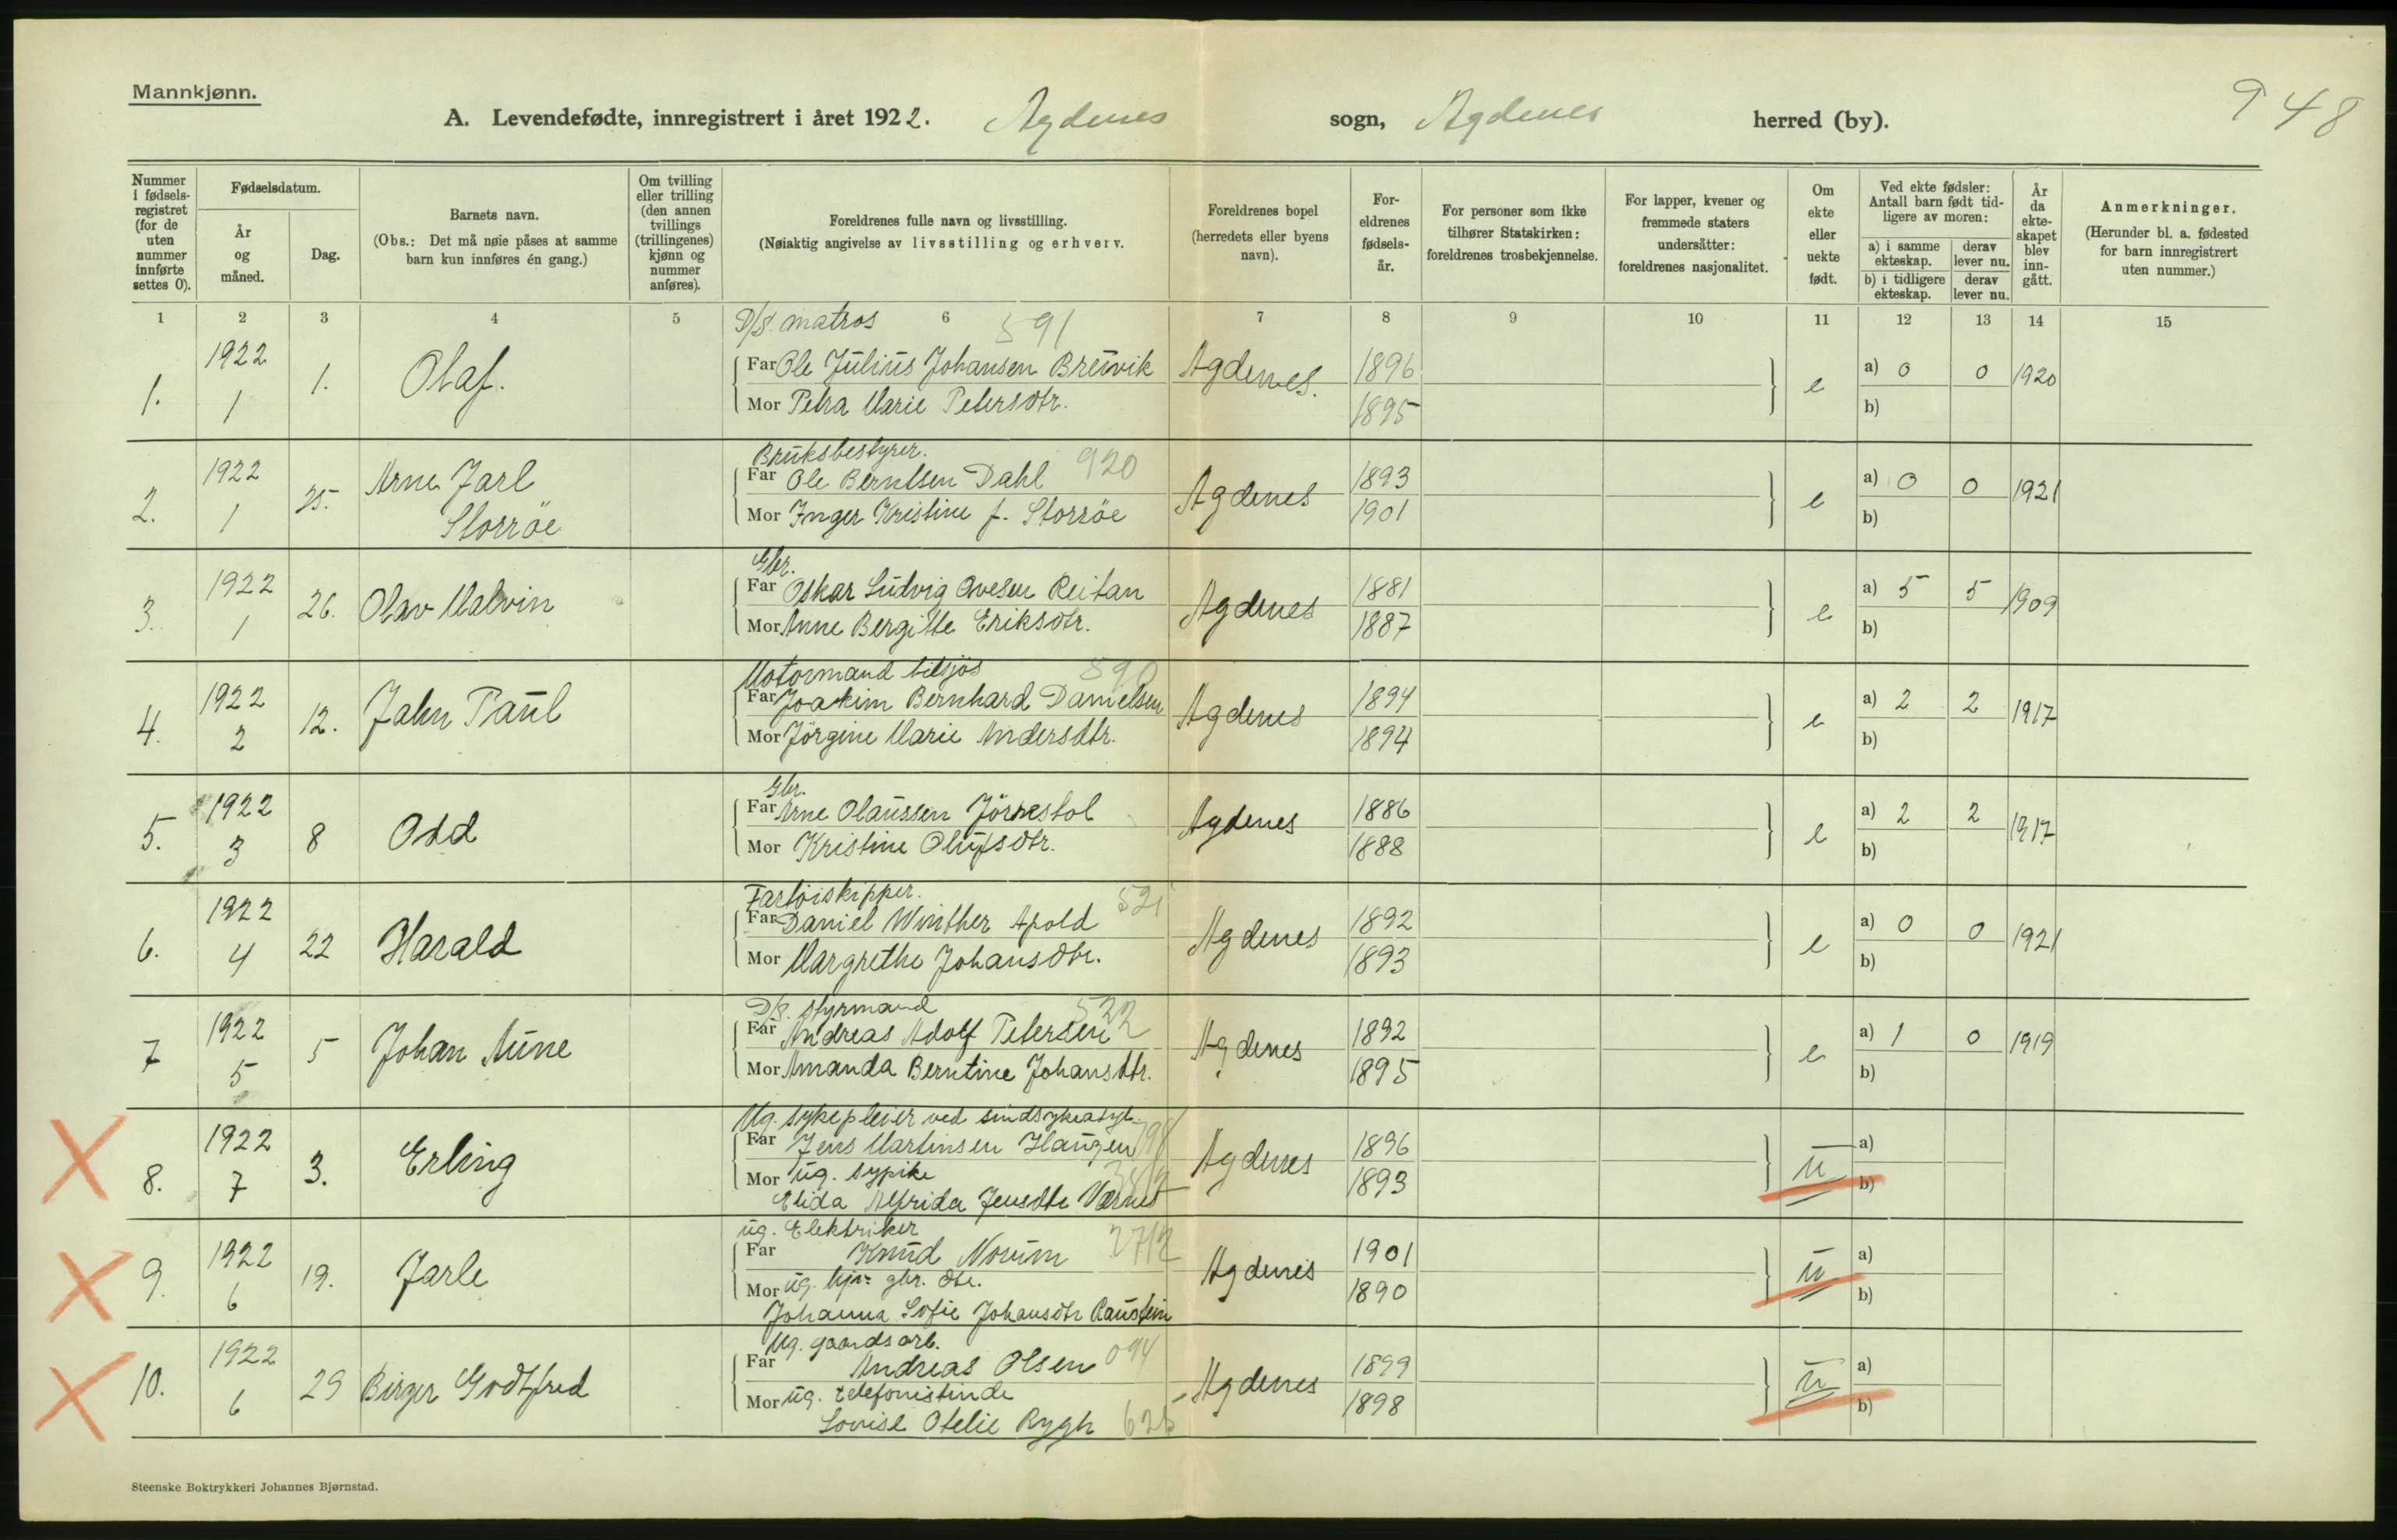 Mannkjønn.
A. Levendefødte, innregistrert i året 1922. Agdenes sogn, Agdenes herred (by).
948
Nummer i fødselsregistret (for de uten nummer innførte settes 0).
Fødselsdatum.
År og måned.
Dag.
Barnets navn.
(Obs.: Det må nøie påses at samme barn kun innføres én gang.)
Om tvilling eller trilling (den annen tvillings (trillingenes) kjønn og nummer anføres).
Foreldrenes fulle navn og livsstilling.
(Nøiaktig angivelse av livsstilling og erhverv.
Foreldrenes bopel (herredets eller byens navn).
Foreldrenes fødselsår.
For personer som ikke tilhører Statskirken: foreldrenes trosbekjennelse.
For lapper, kvener og fremmede staters undersåtter: foreldrenes nasjonalitet.
Om ekte eller uekte født.
Ved ekte fødsler: Antall barn født tidligere av moren:
a) i samme ekteskap. derav lever nu.
b) i tidligere ekteskap. derav lever nu.
År da ekteskapet blev inngått.
Anmerkninger.
(Herunder bl. a. fødested for barn innregistrert uten nummer.)
1 2 3 4 5 6 7 8 9 10 11 12 13 14 15
D/S. matros 591
1. 1922 1 1. Olaf.
Far Ole Julius Johansen Breivik Agdenes. 1896 e a) 0 0 1920
Mor Petra Marie Petersdtr. 1895 b)
Bruksbestyrer. 920
2. 1922 1 25. Arne Jarl Storröe
Far Ole Berntsen Dahl Agdenes 1893 e a) 0 0 1921
Mor Inger Kristine f. Storröe 1901 b)
Gbr.
3. 1922 1 26. Olav Malvin
Far Oskar Ludvig Ovesen Reitan Agdenes 1881 e a) 5 5 1909
Mor Anne Bergitte Eriksdtr. 1887 b)
Motormand tilsjös 590
4. 1922 2 12. Jahn Paul
Far Joakim Bernhard Danielsen Agdenes 1894 e a) 2 2 1917
Mor Jörgine Marie Andersdtr. 1894 b)
Gbr.
5. 1922 3 8 Odd
Far Arne Olaussen Jörnestol Agdenes 1886 e a) 2 2 1917
Mor Kristine Olufsdtr. 1888 b)
Fartöiskipper. 521
6. 1922 4 22 Harald
Far Daniel Winther Apold Agdenes 1892 e a) 0 0 1921
Mor Margrethe Johansdtr. 1893 b)
D/S. styrmand 522
7 1922 5 5 Johan Aune
Far Andreas Adolf Petersen Agdenes 1892 e a) 1 0 1919
Mor Amanda Berntine Johansdtr. 1895 b)
Ug. sykepleier ved sindsykeasyl.
8. 1922 7 3. Erling
Far Jens Martinsen Haugen Agdenes 1896 u a)
Mor ug. sypike 1893 b)
Elida Alfrida Jensdtr Værnes
ug. Elektriker
9. 1922 6 19. Jarle
Far Knud Norum 2712 Agdenes 1901 u a)
Mor ug. hjv. gbr. dtr. 1890 b)
Johanna Sofie Johansdtr Raustein
Ug. gaardsarb.
10. 1922 6 29 Birger Godtfred
Far Andreas Olsen 094 Agdenes 1899 u a)
Mor ug. telefonistinde 1898 b)
Lovise Otelie Rygh 626
Steenske Boktrykkeri Johannes Bjørnstad.